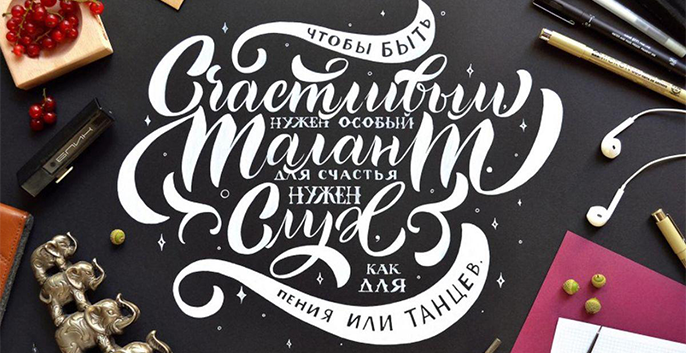 ЧТОБЫ БЫТЬ
Счастливым,
НУЖЕН ОСОБЫЙ
Талант.
ДЛЯ СЧАСТЬЯ
НУЖЕН
Слух,
КАК
ДЛЯ
ПЕНИЯ ИЛИ ТАНЦЕВ.
БЛИК